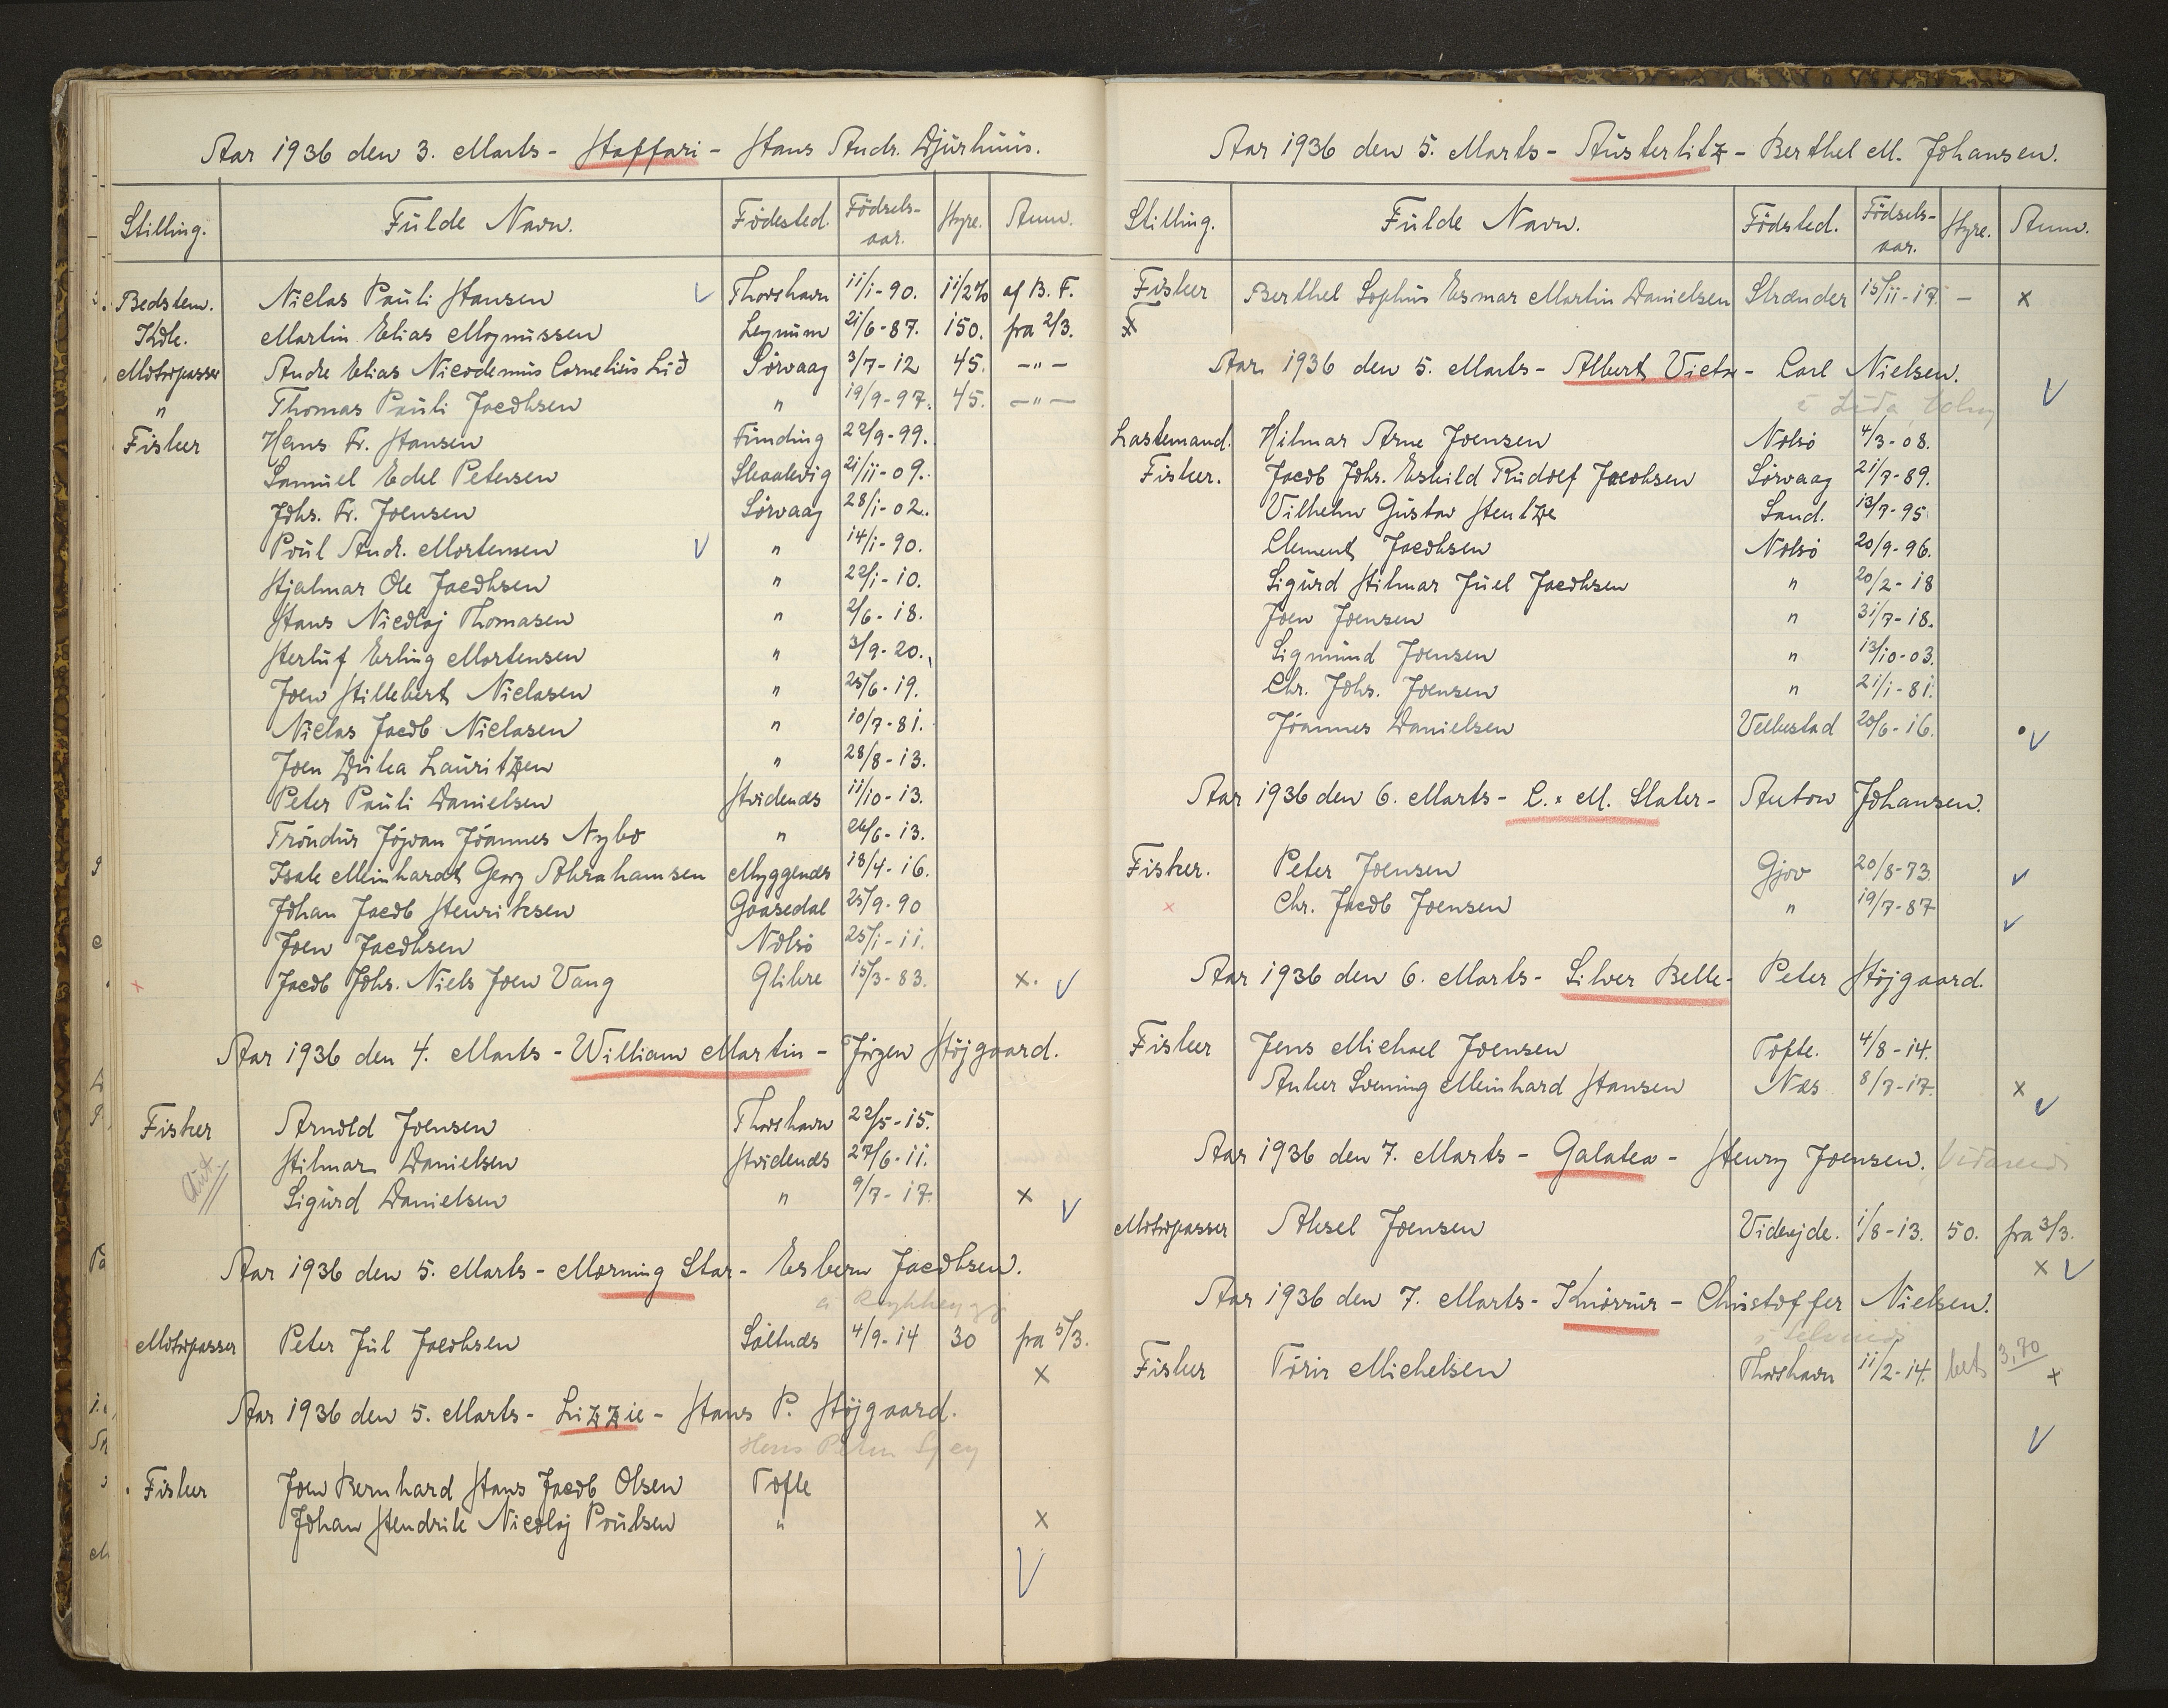 Aar 1936 den 3. Marts - Haffari - Hans Andr. Djurhuus.
Stilling. Fulde Navn. Födested. Födsels-aar. Hyre. Anm.
Bedstem. Niclas Pauli Hansen Thorshavn 11/1-90. 11/2% af B. F.
Kok. Martin Elias Magnussen Lejnum 21/6-87. 150. fra 2/3.
Motorpasser Andr. Elias Nicodemus Cornelius Lið Sörvaag 3/7-12 45. -"-
" Thomas Pauli Jacobsen " 19/9-97. 45. -"-
Fisker Hans Fr. Hansen Funding 22/9-99.
Samuel Edel Petersen Skaalevig 21/11-09.
Johs. Fr. Joensen Sörvaag 28/1-02.
Poul Andr. Mortensen " 14/1-90.
Hjalmar Ole Jacobsen " 22/1-10.
Hans Nicolaj Thomasen " 2/6-18.
Herluf Erling Mortensen " 3/9-20.
Joen Hillebert Niclasen " 25/6-19.
Niclas Jacob Niclasen " 10/7-81.
Joen Lauritzen " 28/8-13.
Peter Pauli Danielsen Hvidenæs 11/10-13.
Tróndur Jógvan Jóannes Nybo " 26/6-13.
Isak Meinhardt Georg Abrahamsen Myggenæs 18/4-16.
Johan Jacob Henriksen Gaasedal 25/9-90
Joen Jacobsen Nolsö 25/1-11.
x Jacob Johs. Niels Joen Vang Glibre 15/3-83. x.
Aar 1936 den 4. Marts - William Martin - Jörgen Höjgaard.
Fisker Arnold Joensen Thorshavn 22/5-15.
Hilmar Danielsen Hvidenæs 27/6-11.
Sigurd Danielsen " 9/7-17. x
Aar 1936 den 5. Marts - Morning Star - Esbern Jacobsen.
Motorpasser Peter Jul Jacobsen Saltnæs 4/9-14 30 fra 5/3.
x
Aar 1936 den 5. Marts - Lizzie - Hans P. Höjgaard.
Hans Peter
Fisker Joen Bernhard Hans Jacob Olsen Tofte
Johan Hendrik Nicolaj Poulsen " x
Aar 1936 den 5. Marts - Austerlitz - Berthel M. Johansen.
Stilling. Fulde Navn. Födsted. Födsels-aar. Hyre. Anm.
Fisker Berthel Sophus Esmar Martin Danielsen Strænder 15/11-17. - x
x
Aar 1936 den 5. Marts - Albert Victor - Carl Nielsen.
Lastemand. Hilmar Arne Joensen Nolsö 4/3-08.
Fisker. Jacob Johs. Eskild Rudolf Jacobsen Sörvaag 21/7-89.
Vilhelm Gustav Hentze Sand. 13/7-95
Clement Jacobsen Nolsö 20/9-96.
Sigurd Hilmar Juel Jacobsen " 20/2-18
Joen Joensen " 31/7-18.
Sigmund Joensen " 13/10-03.
Chr. Johs. Joensen " 21/1-81.
Jóannes Danielsen Velbestad 20/6-16.
Aar 1936 den 6. Marts - C. x M. Slater - Anton Johansen.
Fisker. Peter Joensen Gjov 20/8-73.
x Chr. Jacob Joensen " 19/7-87
Aar 1936 den 6. Marts - Silver Belle - Peter Höjgaard.
Fisker Jens Michael Joensen Tofte. 4/8-14.
Anker Svenning Meinhard Hansen Næs 8/7-17. x
Aar 1936 den 7. Marts - Galatea - Henry Joensen.
Motorpasser Aksel Joensen Viderejde. 1/8-13. 50. fra 3/3.
x
Aar 1936 den 7. Marts - Knörrur - Christoffer Nielsen.
Fisker Tórir Michelsen Thorshavn 11/2-14. 3,70 x